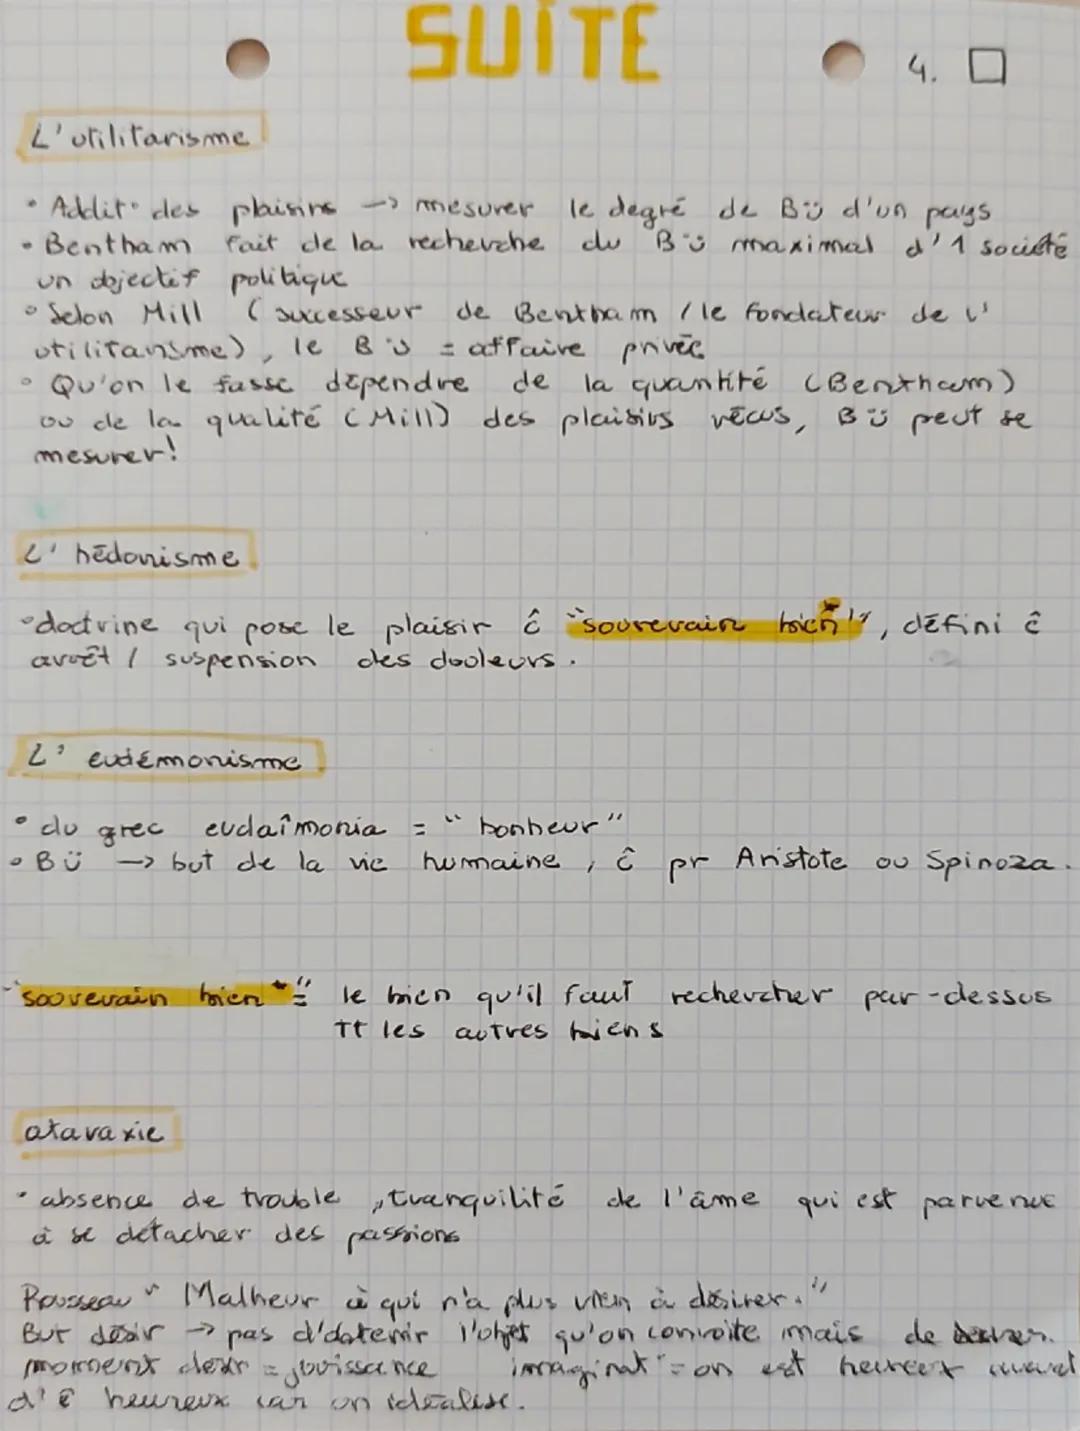 SUITE
4.
L'utilitarisme
• Addit° des plaisirs -> mesurer le degré de Bü d'un pays
• Bentham fait de la recherche du Bü maximal d'1 société
un objectif politique
• Selon Mill (successeur de Bentham / le fondateur de l'
utilitarisme), le Bü = affaire privée
• Qu'on le fasse dépendre de la quantité (Bentham)
ou de la qualité (Mill) des plaisirs vécus, Bü peut se
mesurer!
L'hédonisme
• doctrine qui pose le plaisir ĉ "souverain bien*", défini ĉ
arrêt / suspension des douleurs.
L'eudémonisme
• du grec eudaîmonia = "bonheur"
• Bü -> but de la vie humaine, ĉ pr Aristote ou Spinoza.
"souverain bien*" = le bien qu'il faut rechercher par-dessus
tt les autres biens
ataraxie
• absence de trouble, tranquilité de l'âme qui est parvenue
à se détacher des passions
Rousseau "Malheur à qui n'a plus rien à désirer."
But désir -> pas d'obtenir l'objet qu'on convoite mais de
moment désir = jouissance imaginat° = on est heureux avant
d'ê heureux car on idéalise.